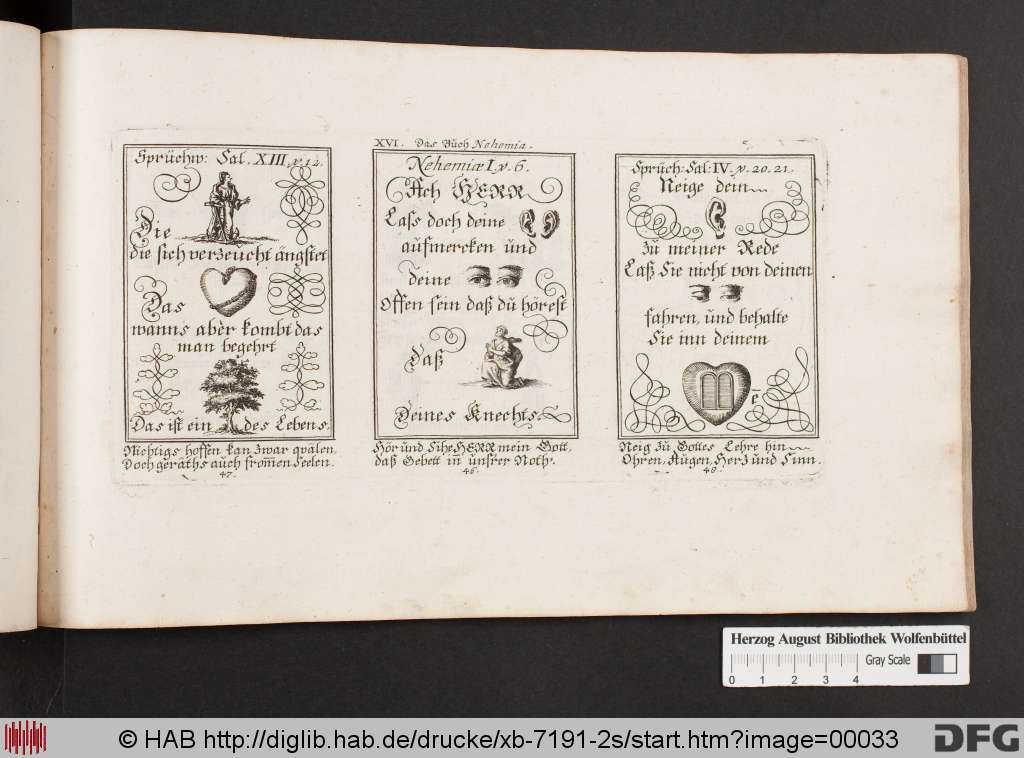 Sprüchw: Sal. XIII. v. 12.
Die
die sich verzeucht ängstet
Das
wanns aber kombt das
man begehrt
Das ist ein des Lebens.
Nichtigs hoffen kan zwar qvälen,
Doch geräths auch from̃en Seelen.
47.
XVI. Das Büch Nehemia.
Nehemiæ I. v. 6.
Ach HERR
Lass doch deine
aufmercken und
deine
Offen sein daß dü hörest
Daß
Deines Knechts.
Hör und Sihe HERR mein Gott,
daß Gebett in̄ unsrer Noth.
Sprüch: Sal: IV. v. 20. 21.
Neige dein
zü meiner Rede
Laß Sie nicht von deinen
fahren, und behalte
Sie inn deinem
ē
Neig zü Gottes Lehre hin
Ohren, Augen, Herz und Sinn.
Herzog August Bibliothek Wolfenbüttel
Gray Scale
0 1 2 3 4
© HAB http://diglib.hab.de/drucke/xb-7191-2s/start.htm?image=00033
DFG